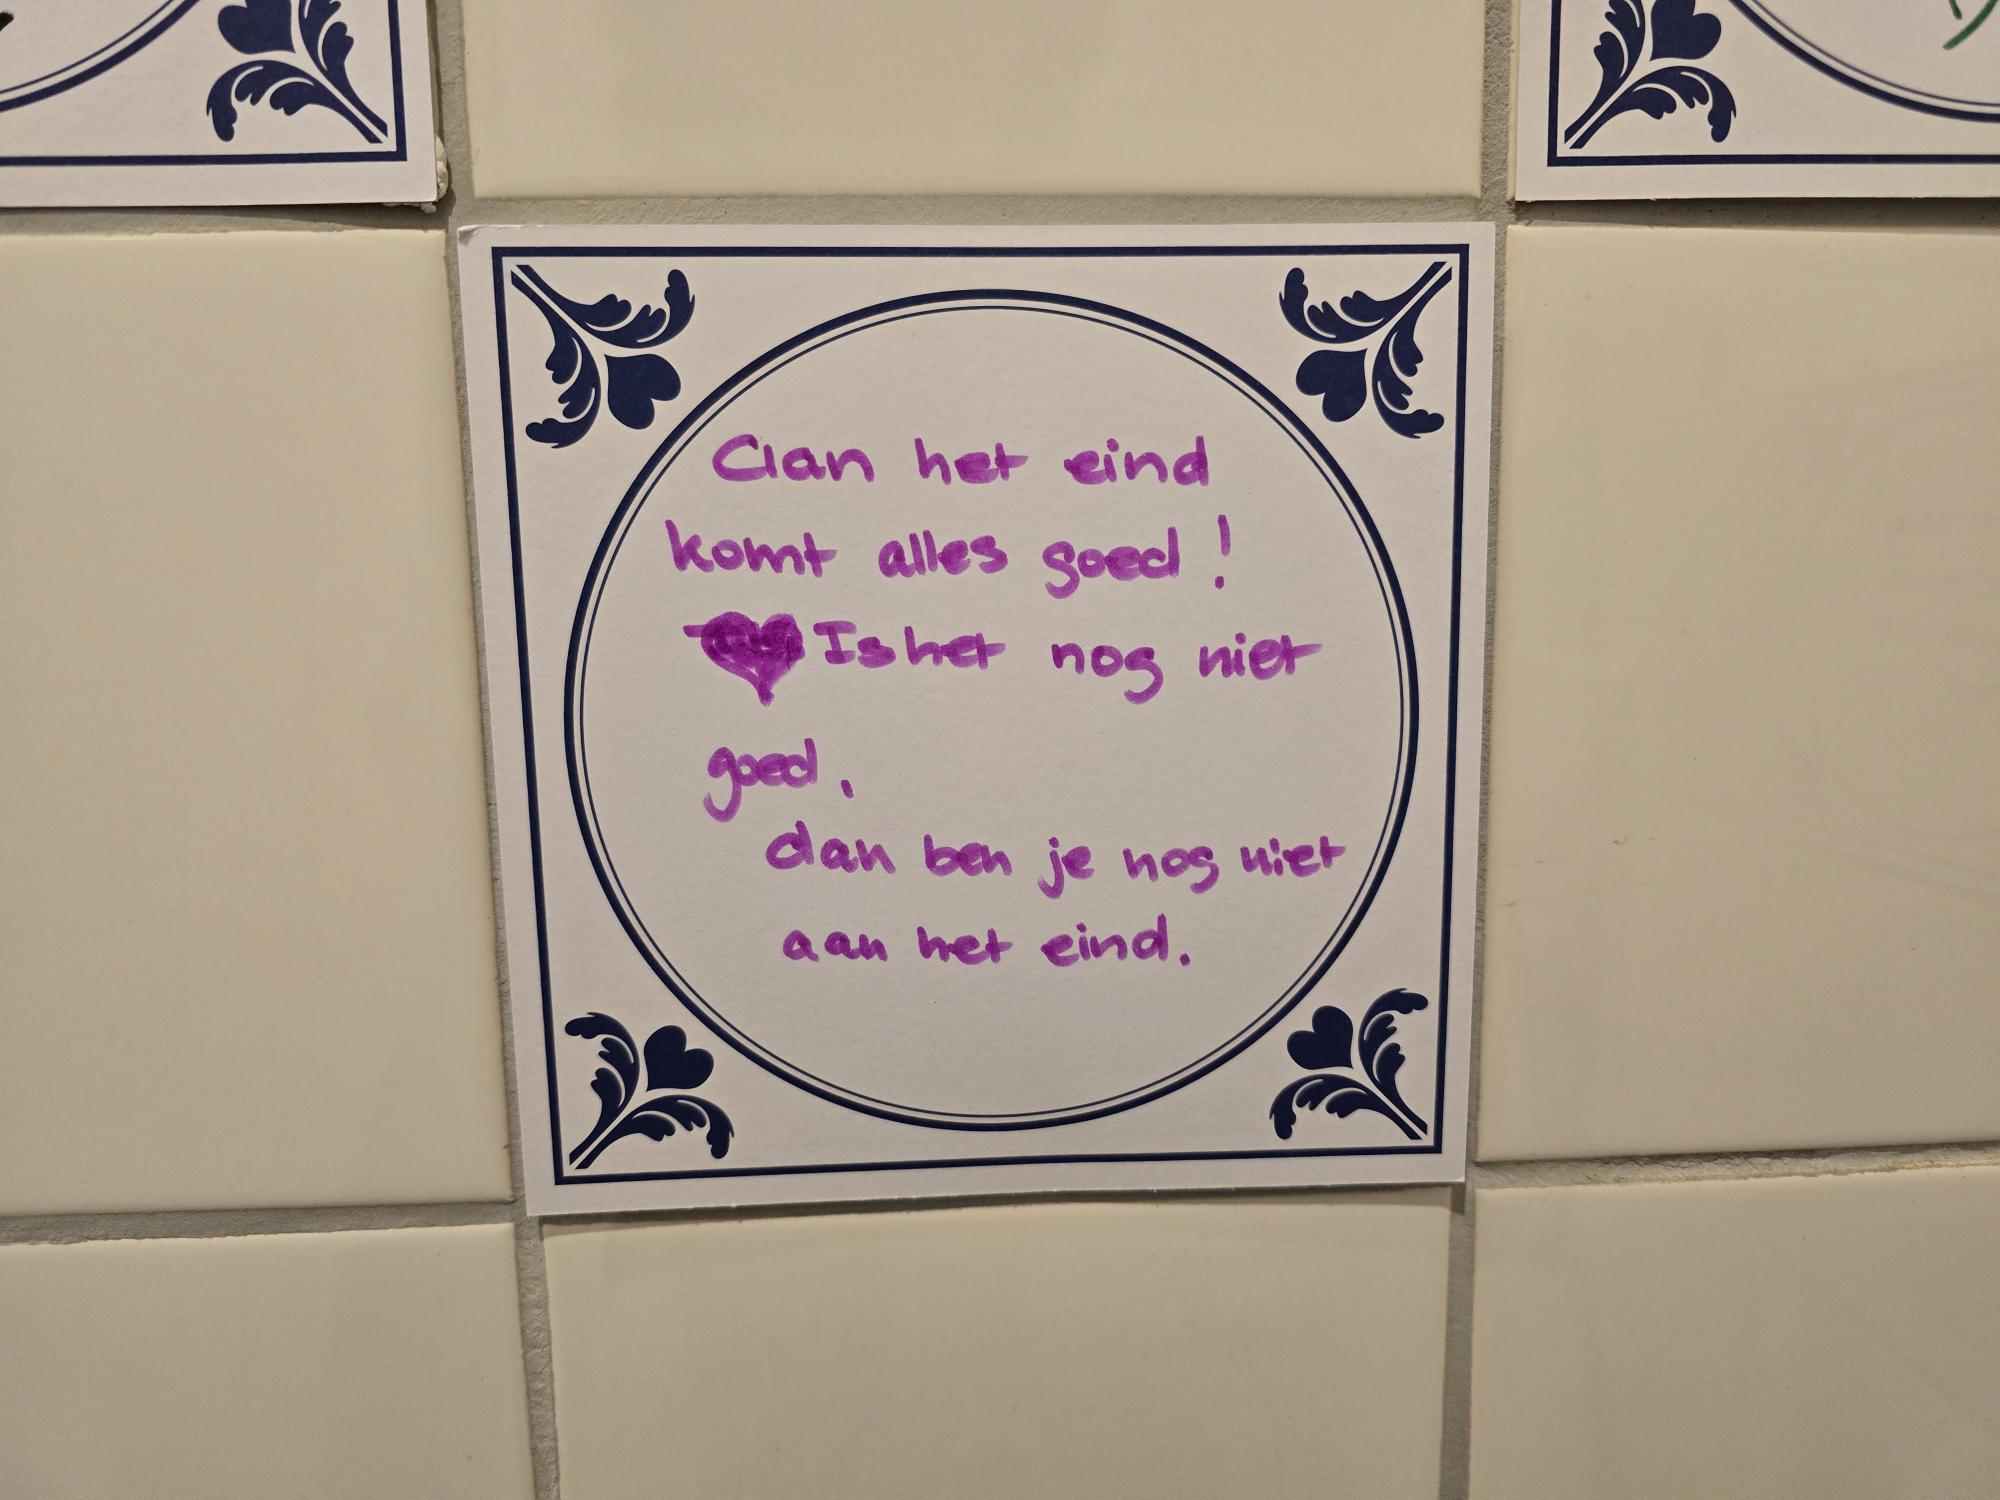 Aan het eind
komt alles goed!
Is het nog niet
goed,
dan ben je nog niet
aan het eind.